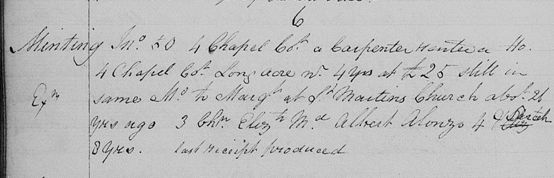 6
Minting Jno. 50 4 Chapel Cot. a Carpenter rented a Ho.
4 Chapel Cot. Long acre nr. 4 yrs at £25 still in
Exn same Mo. to Margt at St Martins Church abot. 21
yrs ago 3 Chn. Elizth Md Albert Alonzo 4 & Sarah
8 yrs. last receipt produced